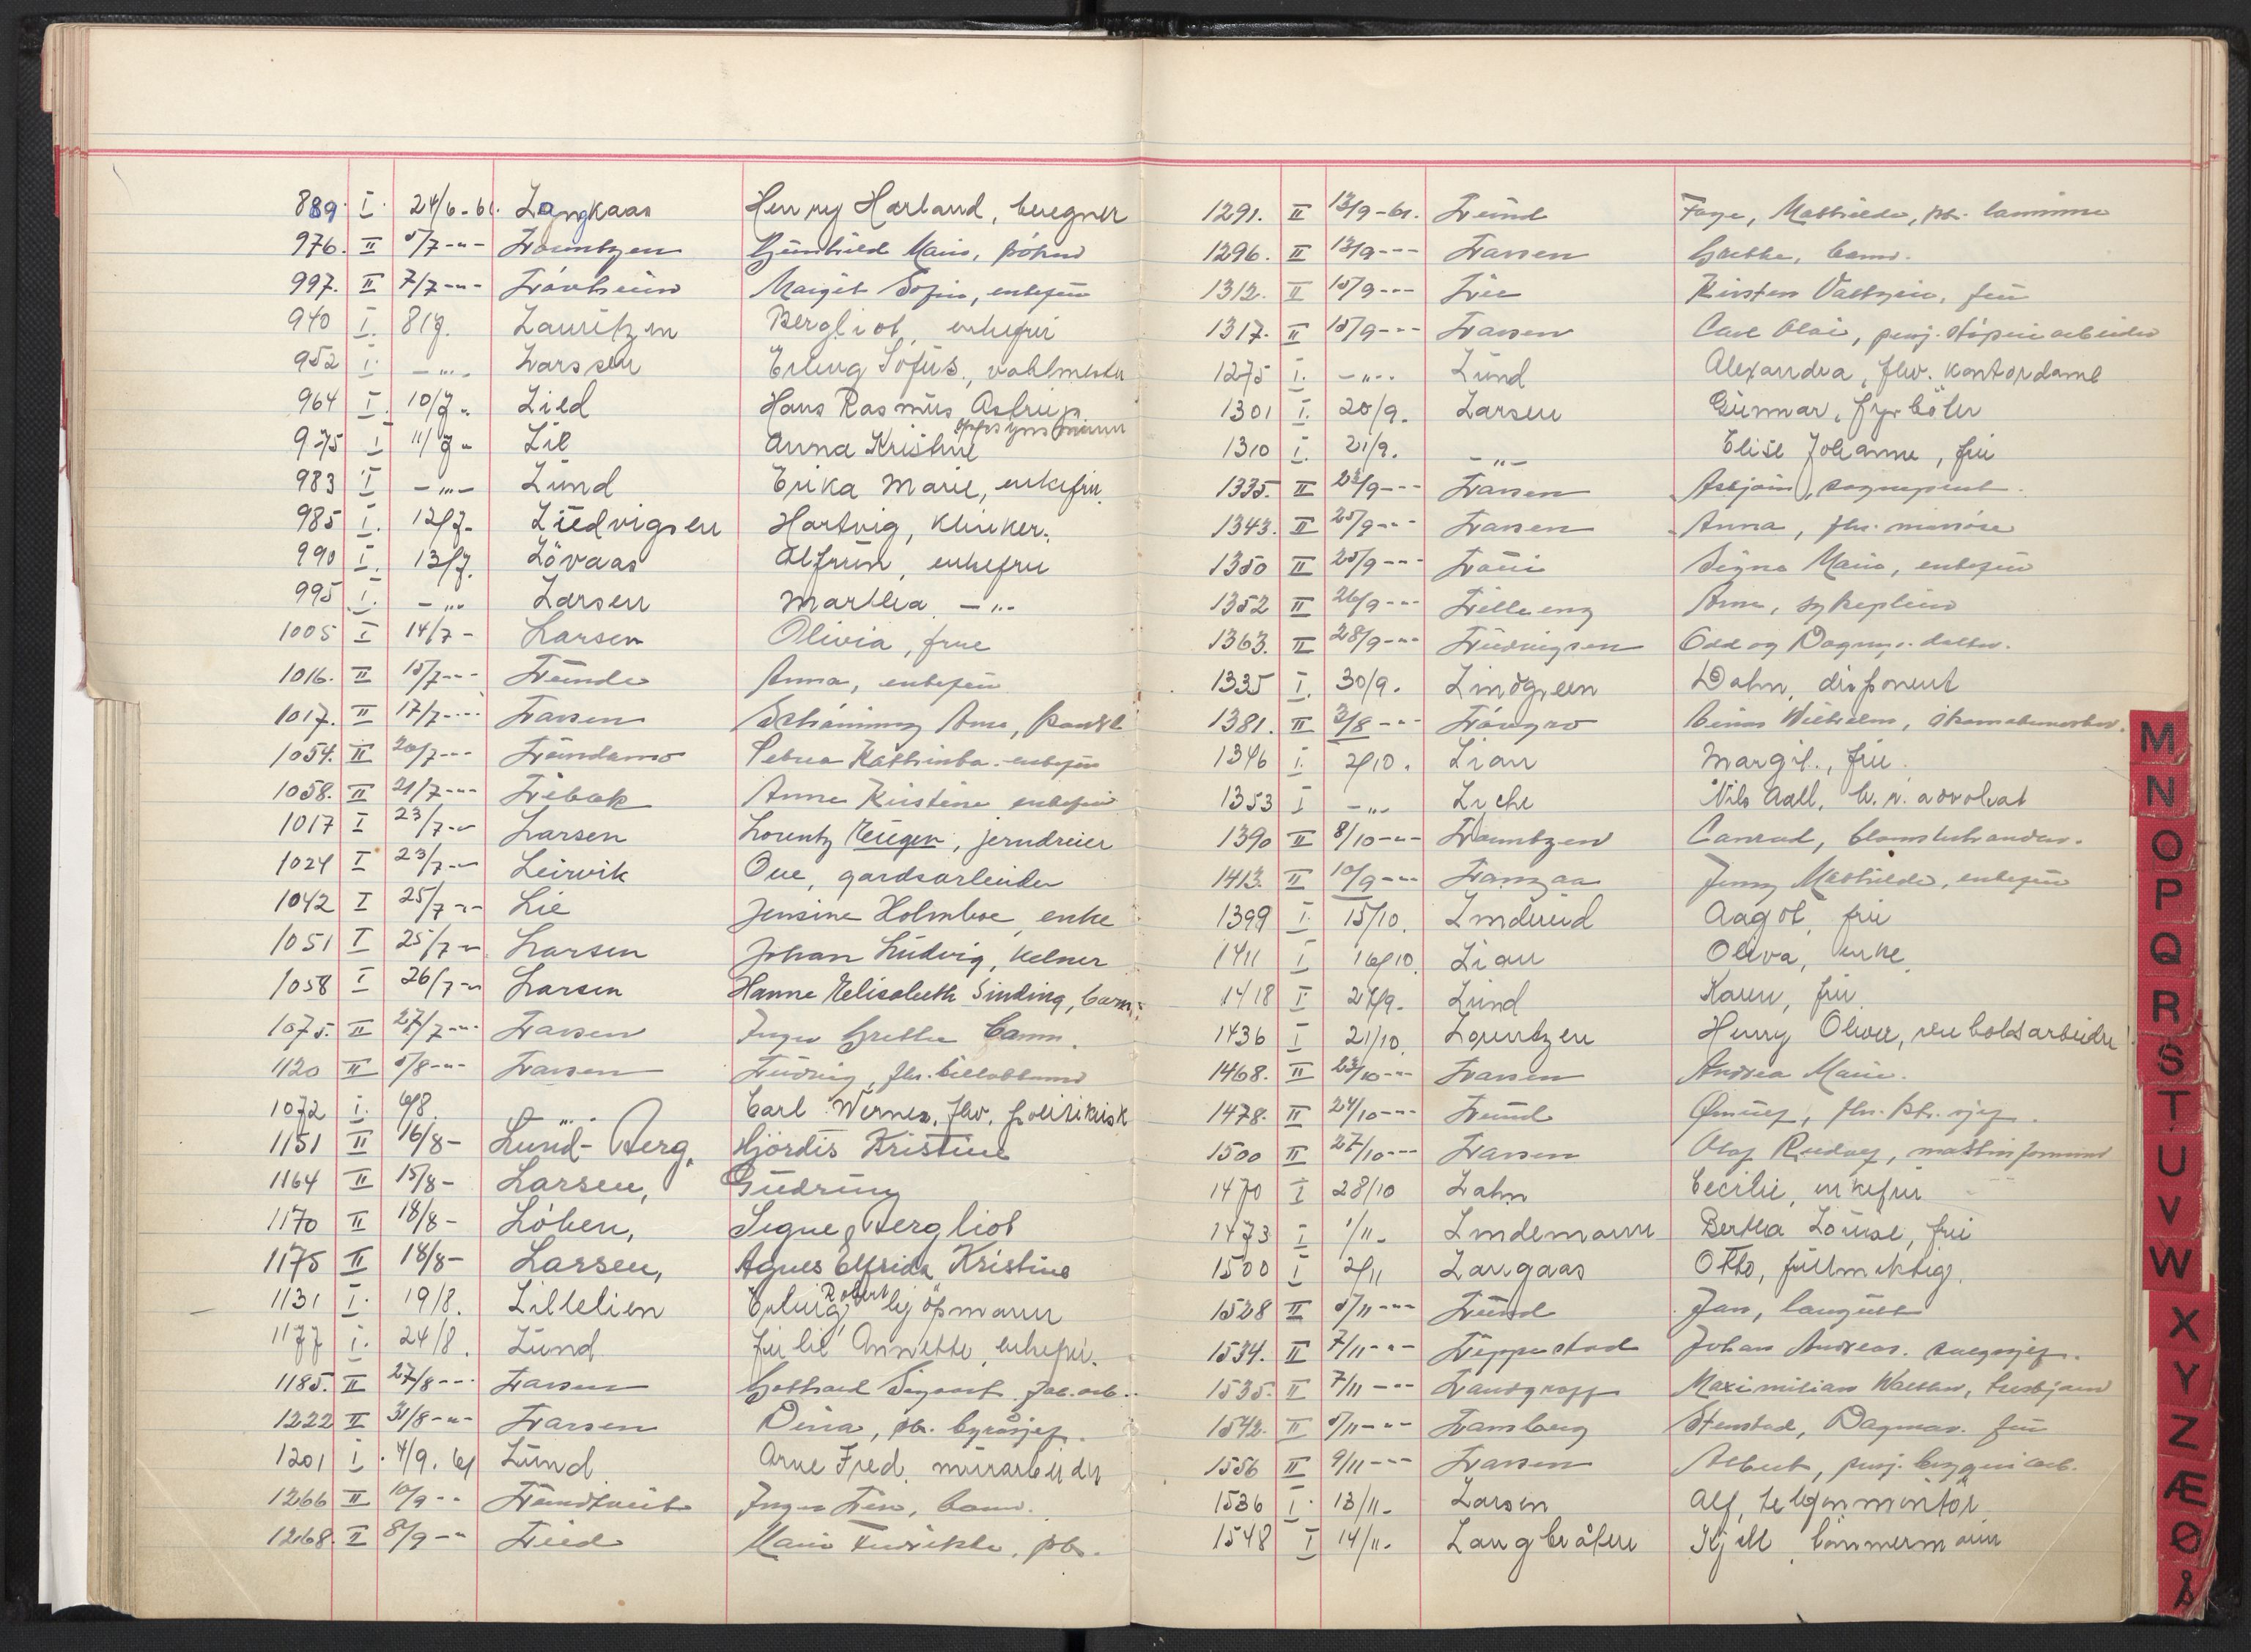 889. I. 24/6-61. Langkaas Henry Harland, beregner
976. II 5/7-"- Lauritzen Gunhild Marie,
997. II 7/7-"- Margit Sofie, enkefru
940 I. 8/7. Lauritzen Bergliot, enkefru
952 I. -"- Larssen Erling Sofus.,
964 I. 10/7. Lied Hans Rasmus Astrup
oppsynsmann
975 I 11/7- Lie Anna Kristine
983 I -"- Lund Erika Marie, enkefru.
985 I. 12/7- Ludvigsen Hartvig, klinker.
990 I. 13/7. Lövaas Alfrun, enkefru
995 I. -"- Larsen Marthea -"-
1005 I 14/7- Larsen Olivia, frue
1016. II 15/7-"- Lunde Anna, enkefru
1017. II 17/7-"- Larsen
1054. II 20/7-"- Petrea Kathinka. enkefru
1058. II 21/7-"- Libak Anne Kirstine enkefru
1017 I 23/7-"- Larsen Lorentz Eugen, jerndreier
1024 I 23/7-"- Leirvik Ove, gardsarbeider
1042 I 25/7-"- Lie Jensine Holmboe, enke
1051 I 25/7-"- Larsen Johan Ludvig, kelner
1058 I 26/7-"- Larsen Hanne Elisabeth Sinding, barn.
1075. II 27/7-"- Larsen Inger Grethe barn.
1120 II 5/8-"- Larsen Ludvig, fhv.
1072 I. 6/8. -"- Carl Werner, fhv. politikaisk
1151 II 16/8- Lund-Berg, Hjördis Kristine
1164 II 15/8- Larsen, Gudrun
1170 II 18/8- Löken, Signe Bergliot
1175 II 18/8- Larsen, Agnes Elfrida Kristine
1131 I. 19/8. Lillelien Erling Robert
1177 I. 24/8. Lund Annette, enkefru.
1185. II 27/8-"- Larsen Gothard Sigvart. fab.arb.
1222 II 31/8-"- Larsen Dina,
1201 I. 4/9.61 Lund Arne Fred. murarbeider
1266 II 10/9-" Inger Lise, barn.
1268. II 8/9-" Lied Marie
1291. II 13/9-61. Lund Faye, Mathilde,
1296. II 13/9-"- Larsen Grethe, barn.
1312. II 15/9-"- Lie Kirsten fru
1317. II 15/9-"- Larsen Carl Olai, pensj. støperiarbeider
1275 I. -"- Lund Alexandra, fhv. kontordame
1301 I. 20/9. Larsen Gunnar, fyrböter
1310 I. 21/9. -"- Elise Johanne, fru
1335. II 23/9-"- Larsen Asbjørn,
1343. II 25/9-"- Larsen Anna, fhv.
1350 II 25/9-"- Signe Marie, enkefru
1352 II 26/9-"- Lilleeng Arne, sykepleier
1363. II 28/9-"- Ludvigsen Odd og Dagny s. datter.
1335 I. 30/9. Lindgreen Dahn, disponent
1381. II 3/8-"- Einar Wilhelm,
1346 I. 2/10. Lian Margit., fru.
1353 I -"- Liche Nils Aall, h.r. advokat
1390 II 8/10-"- Lauritzen Conrad, blomsterhandler.
1413. II 10/9-"- Langaa Jenny Mathilde, enkefru
1399 I. 15/10. Linderud Aagot, fru
1411 I 16/10. Lian Oliva, enke
1418 I 27/9. Lund Karen, fru.
1436 I 21/10. Lorentzen Henry Oliver, renholdsarbeider
1468. II 23/10-"- Larsen Andrea Marie.
1478. II 24/10-"- Lund
1500 II 27/10-"- Larsen Olaf Rudolf, maskinformann
1470 I 28/10 Lahn Cecilie, enkefru
1473 I 1/11- Lindemann Bertha Louise, fru
1500 I 2/11 Langaas Otto, fullmektig.
1528 II 5/11-"- Lund Jan,
1534. II 7/11-"- Leppestad Johan Andreas.
1535. II 7/11-"- Landgraff Maximilian
1542. II 5/11-"- Lamberg Stenstad, Dagmar. fru
1556 II 9/11-"- Larsen Albert, pensj. bryggeriarb.
1536 I. 13/11- Larsen Alf, telefonmontör
1548 I 14/11. Langbråten Kjell, tömmermann
M
N
O
P
Q
R
S
T
U
V
W
X
Y
Z
Æ
Ø
Å